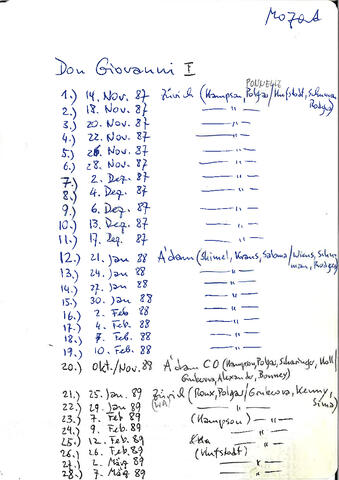 Mozart
Don Giovanni I
PONNELLE
1.) 14. Nov. 87 Zürich (Hampson, Polgar/Hufstodt,
2.) 18. Nov. 87 — " —
3.) 20. Nov. 87 — " —
4.) 22. Nov. 87 — " —
5.) 26. Nov. 87 — " —
6.) 28. Nov. 87 — " —
7. 2. Dez. 87 — " —
8.) 4. Dez. 87 — " —
9.) 6. Dez. 87 — " —
10.) 13. Dez. 87 — " —
11.) 17. Dez. 87 — " —
12.) 21. Jan 88 A'dam (Shimel, Krans,
13.) 24. Jan 88 — " —
14.) 27. Jan 88 — " —
15.) 30. Jan 88 — " —
16.) 2. Feb 88 — " —
17.) 4. Feb. 88 — " —
18.) 7. Feb. 88 — " —
19.) 10. Feb. 88 — " —
20.) Okt./Nov. 88 A'dam CO (Hampson, Polgar, Scharinger, Holl/
Gruberova, Alexander, Bonney)
21.) 25. Jan. 89 Zürich (Roux, Polgar/Gruberova, Kenny,
22.) 29. Jan 89 (WA) — " —
23.) 7. Feb 89 (Hampson) — " —
24.) 9. Feb. 89 — " —
25.) 12. Feb. 89
26.) 26. Feb. 89 (Hufstodt) — " —
27.) 2. März 89 — " —
28.) 7. März 89 — " —